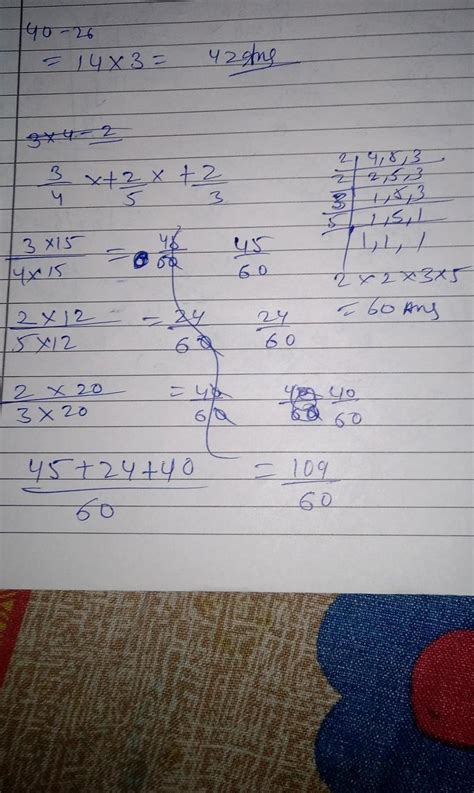 40-26
= 14×3 = 42 Ans
3×4-2
3/4 ×+ 2/5 × + 2/3
2 | 4, 5, 3
2 | 2, 5, 3
3 | 1, 5, 3
5 | 1, 5, 1
1, 1, 1
2×2×3×5
= 60 Ans
3×15/4×15 = 45/60 45/60
2×12/5×12 = 24/60 24/60
2×20/3×20 = 40/60 40/60 40/60
45+24+40/60 = 109/60